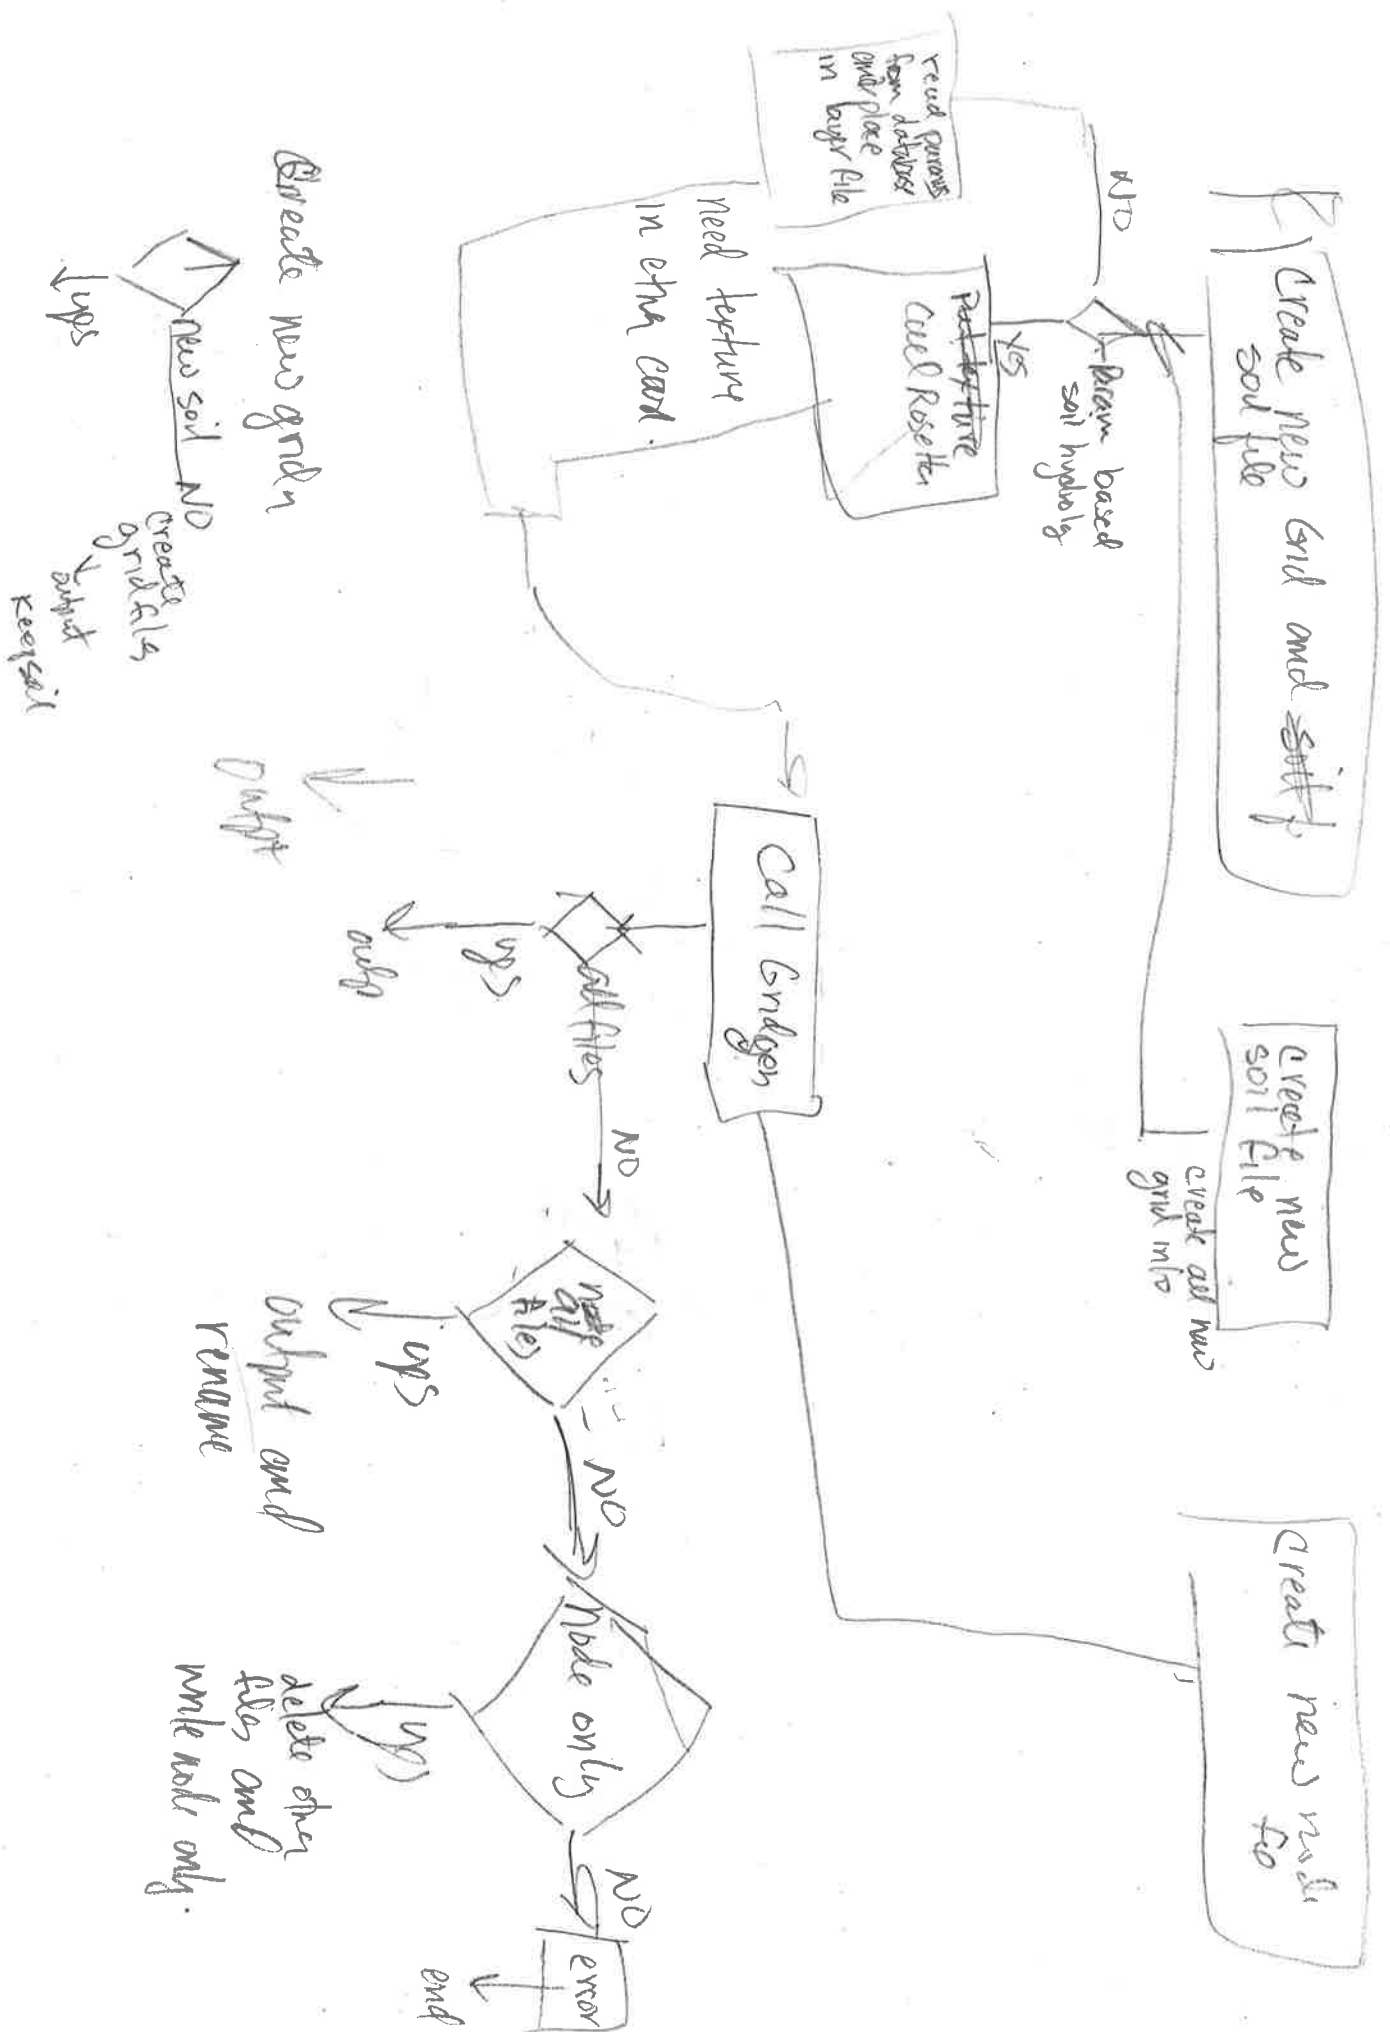 Create new Grid and
soil file
Create new
soil file
create all new
grid info
Create new node
NO
Param based
soil hydrolg
YES
read params
from database
and place
in layer file
Call Rosetta
need texture
in etha card.
Call Gridgen
all files
NO
yes
outp
note
all
files
NO
yes
output and
rename
Node only
NO
yes
delete other
files and
write node only.
error
end
output
Create new grid
new soil NO
yes
create
grid files
output
keepsoil